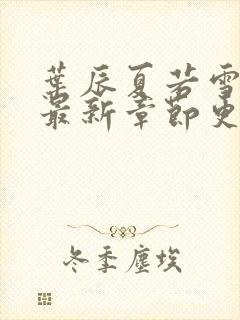 葉辰夏若雪
最新章節更
冬季塵埃